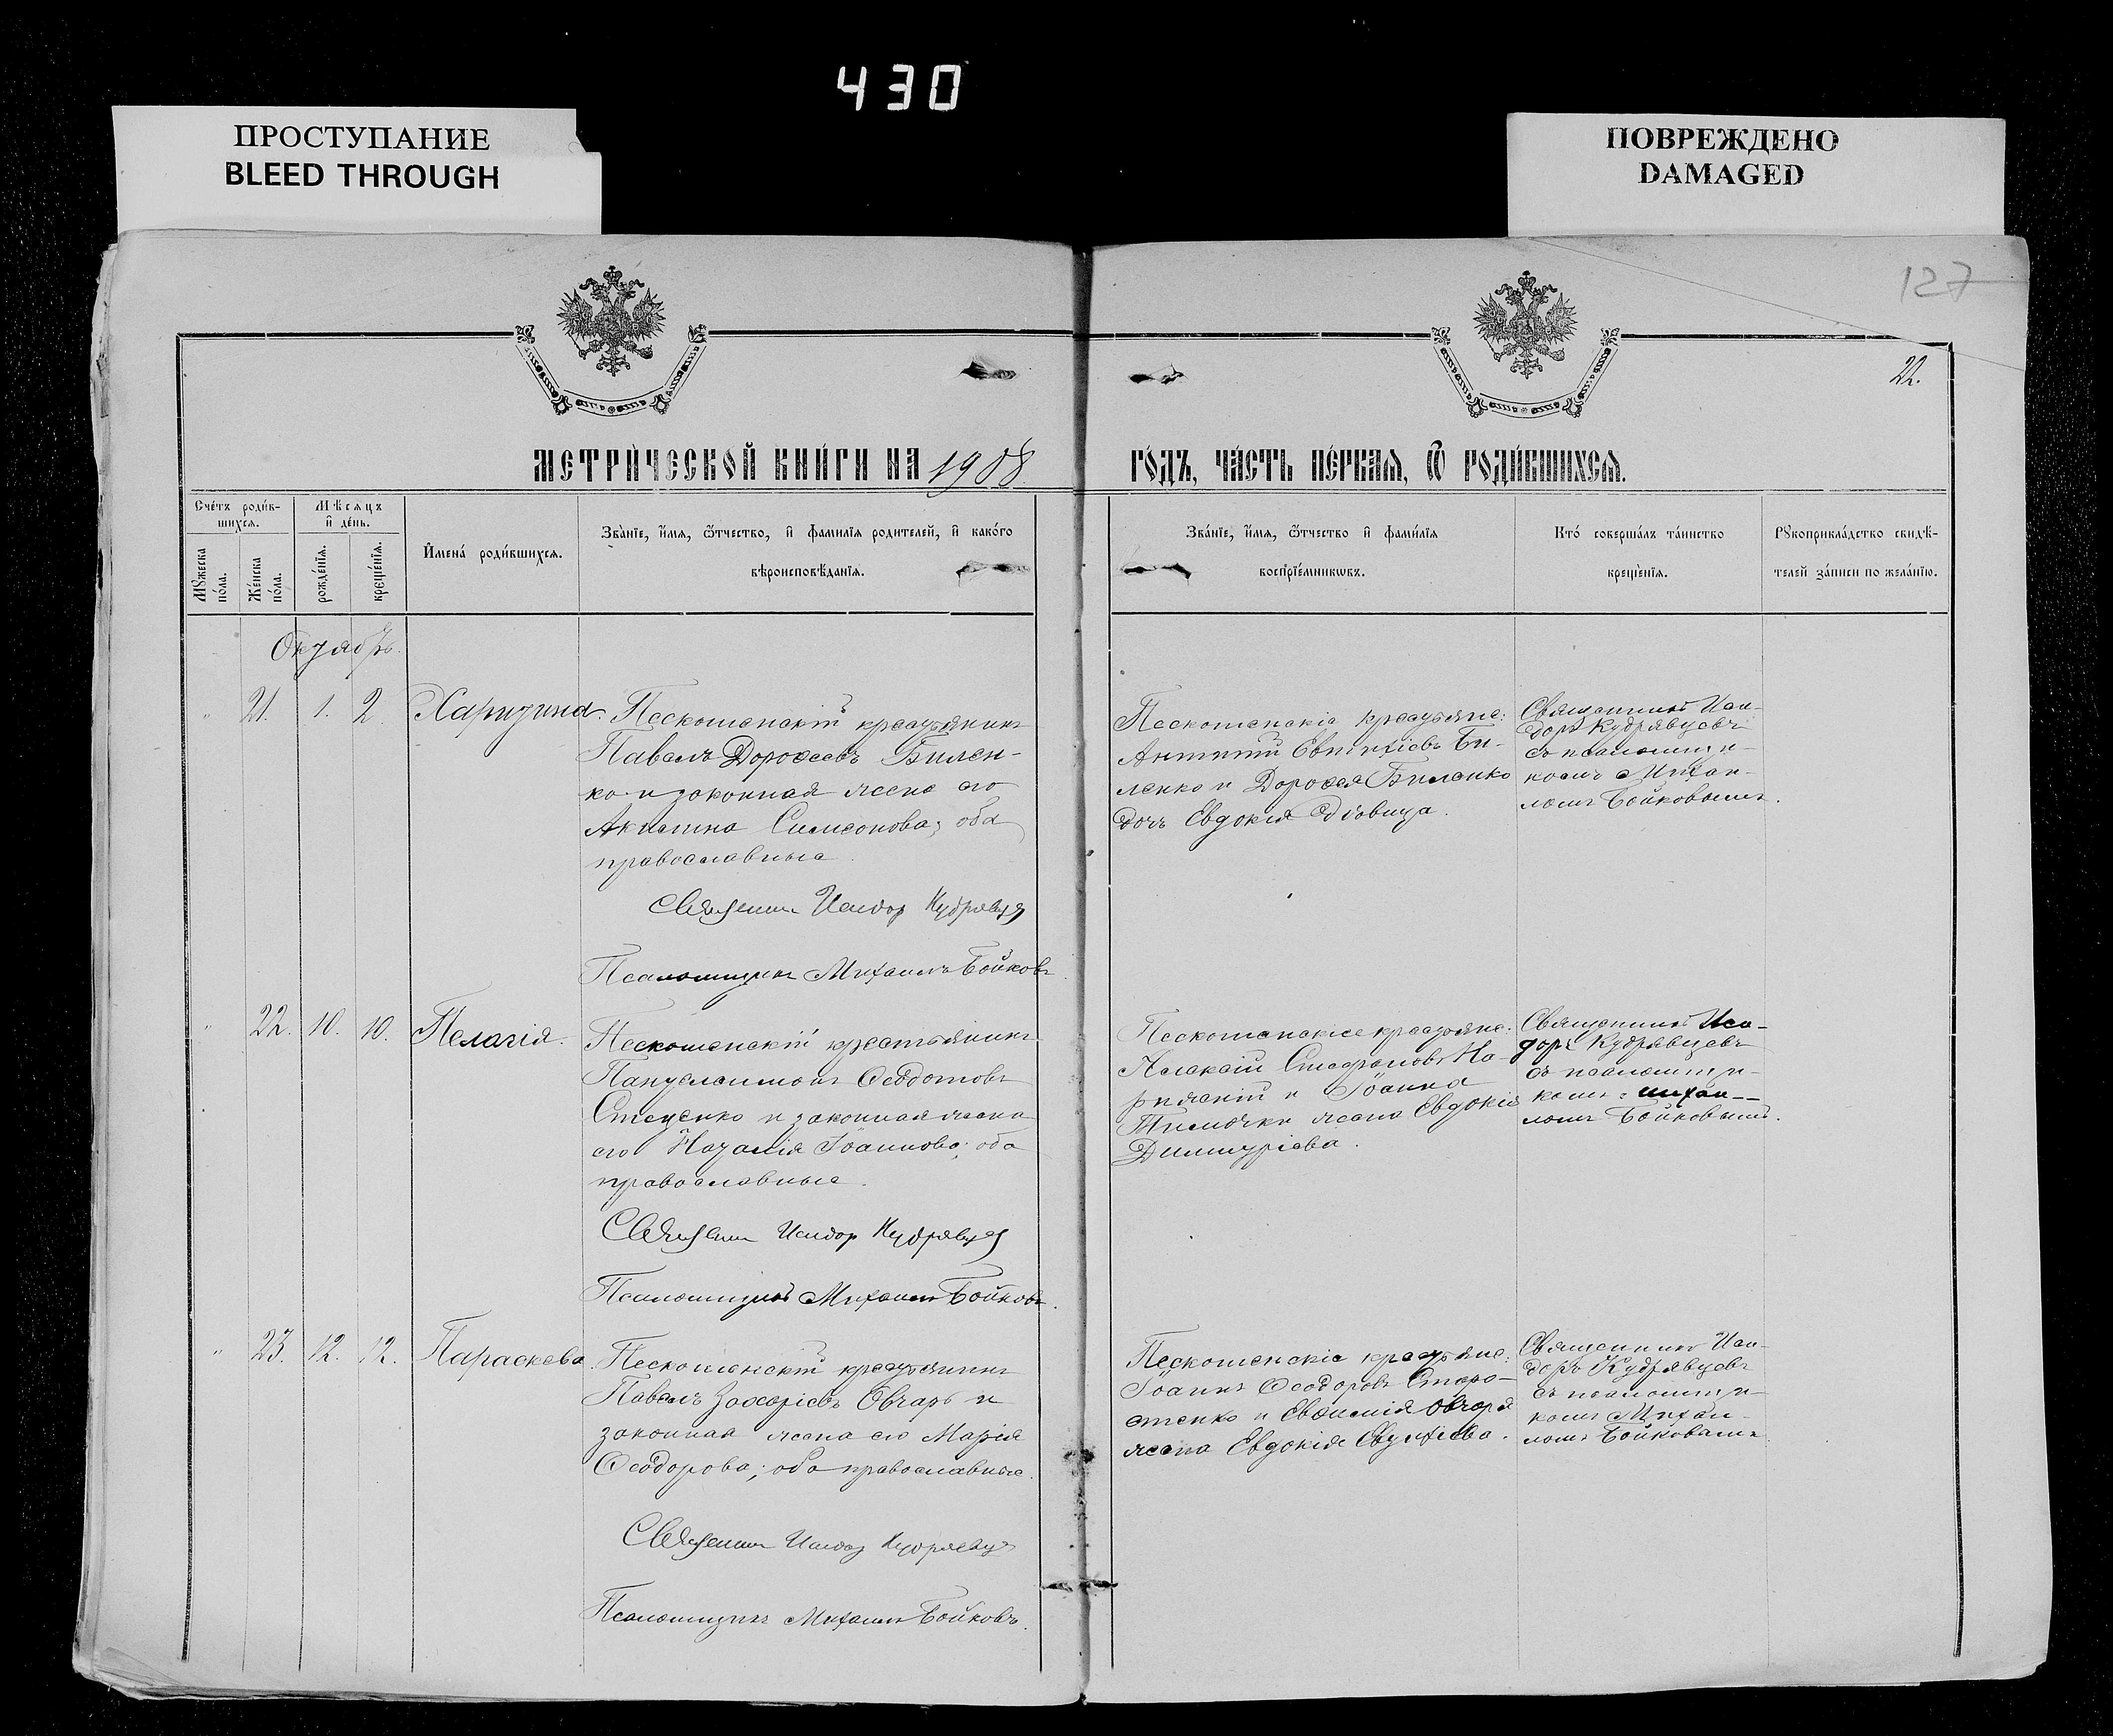 430
ПРОСТУПАНИЕ
BLEED THROUGH
ПОВРЕЖДЕНО
DAMAGED
127
22.
МЕТРИ́ЧЕСКОЙ КНИ́ГИ НА 1908
ГО́ДЪ, ЧА́СТЬ ПЕ́РВАЯ, Ѿ РОДИ́ВШИХСЯ.
Сче́тъ роди́в-
шихся.
Мѣсяцъ
и҆ де́нь.
Мꙋжеска
по́ла.
Же́нска
по́ла.
рожде́нїя.
креще́нїя.
И҆мена̀ роди́вшихся.
Зва́нїе, и҆́мя, ѻ҆́тчество, и҆ фами́лїя роди́телей, и҆ како́го
вѣроисповѣ́данїя.
Зва́нїе, и҆́мя, ѻ҆́тчество и҆ фами́лїя
воспрїе́мникѡвъ.
Кто́ соверша́лъ та́инство
креще́нїя.
Рꙋкоприкла́дство свидѣ́-
телей за́писи по жела́нїю.
Октябрь.
" 21. 1. 2. Харитина.
Пескошенскій крестьянинъ
Павелъ Дороѳеевъ Билен-
ко и законная жена его
Акилина Симеонова; оба
православные.
Священникъ Исидор Кудрявцев
Псаломщикъ Михаилъ Бойковъ.
Пескошенскіе крестьяне:
Антипій Евтихіевъ Би-
ленко и Дороѳея Биленко
дочь Евдокія вдовица.
Священникъ Иси-
доръ Кудрявцевъ
съ псаломщи-
комъ Михаи-
ломъ Бойковымъ.
" 22. 10. 10. Пелагія.
Пескошенскій крестьянинъ
Пантелеимонъ Ѳеодотовъ
Стеценко и законная жена
его Наталія Іоаннова; оба
православные.
Священник Исидор Кудрявцев
Псаломщикъ Михаилъ Бойковъ.
Пескошенскіе крестьяне:
Стефановъ На-
и Іоанна
жена Евдокія
Димитріева.
Священникъ Иси-
доръ Кудрявцевъ
съ псаломщи-
комъ Михаи-
ломъ Бойковымъ.
" 23. 12. 12. Параскева.
Пескошенскій крестьянинъ
Павелъ Захаріевъ Овчаръ и
законная жена его Марія
Ѳеодорова; оба православные.
Священник Исидор Кудрявцев
Псаломщикъ Михаилъ Бойковъ.
Пескошенскіе крестьяне:
Іоаннъ Ѳеодоровъ Старо-
стенко и Евѳимія Овчаря
жена Евдокія Евтихіева.
Священникъ Иси-
доръ Кудрявцевъ
съ псаломщи-
комъ Михаи-
ломъ Бойковымъ